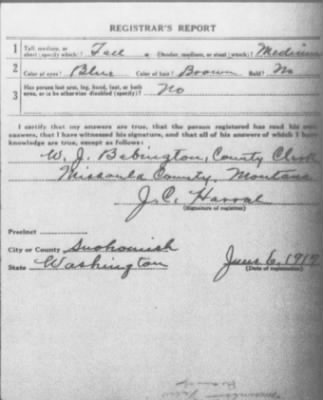 REGISTRAR'S REPORT
1 Tall, medium, or short (specify which)? Tall Slender, medium, or stout (which)? Medium
2 Color of eyes? Blue Color of hair? Brown Bald? No
3 Has person lost arm, leg, hand, foot, or both eyes, or is he otherwise disabled (specify)? No
I certify that my answers are true, that the person registered has read his own
answers, that I have witnessed his signature, and that all of his answers of which I have
knowledge are true, except as follows:
W. J. Babington, County Clerk
Missoula County, Montana
J. C. Harral
(Signature of registrar)
Precinct
City or County Snohomish
State Washington June 6, 1917
(Date of registration)